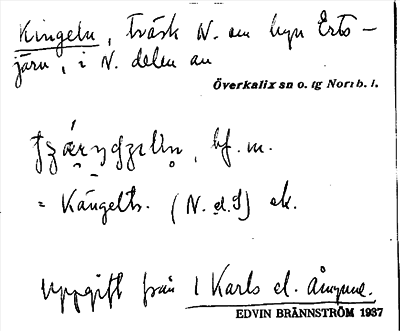 Kingeln, träsk N. om byn Erts-
järv, i N. delen av
Överkalix sn o. tg Norrb. l.
bf. m.
= Kängelts. (N. d. S) ek.
Uppgift från 1 Karls d. Ångsund.
EDVIN BRÄNNSTRÖM 1937